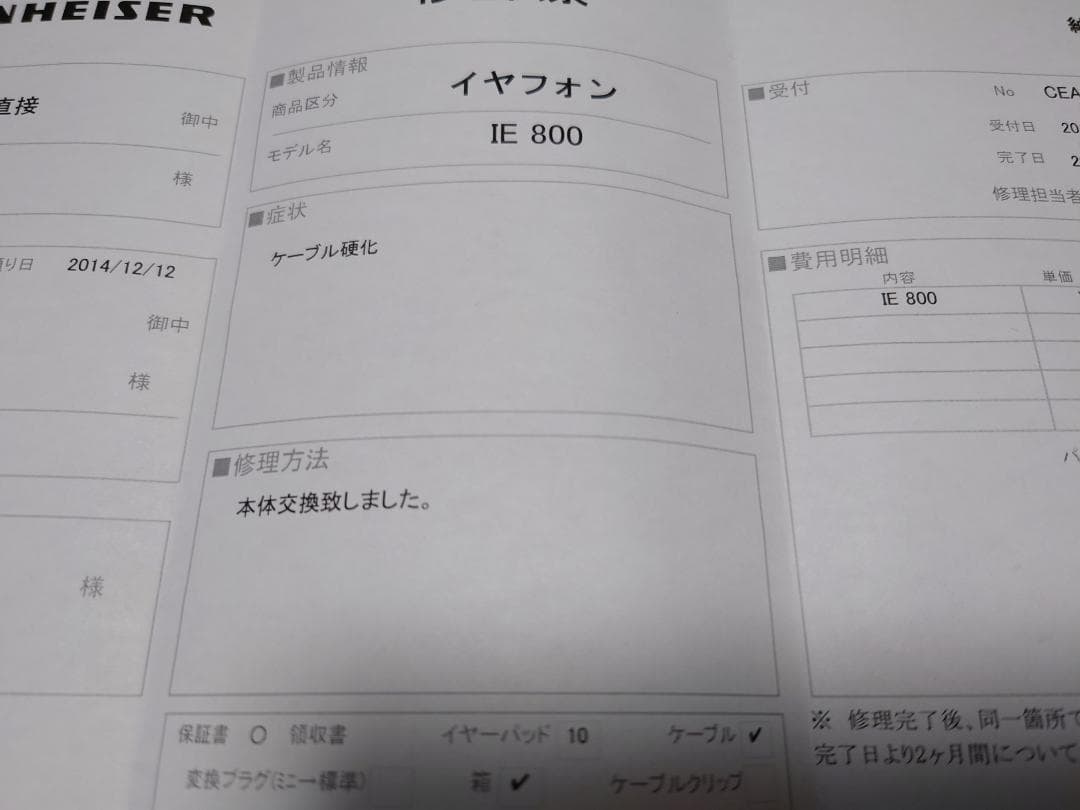 NHEISER
直接
御中
様
り日 2014/12/12
御中
様
様
■製品情報
商品区分 イヤフォン
モデル名 IE 800
■症状
ケーブル硬化
■修理方法
本体交換致しました。
保証書 ○ 領収書 イヤーパッド 10 ケーブル ✓
変換プラグ(ミニー標準) 箱 ✓ ケーブルクリップ
■受付
No CEA
受付日 20
完了日 2
修理担当者
■費用明細
内容 単価
IE 800
※ 修理完了後、同一箇所で
完了日より2ヶ月間について